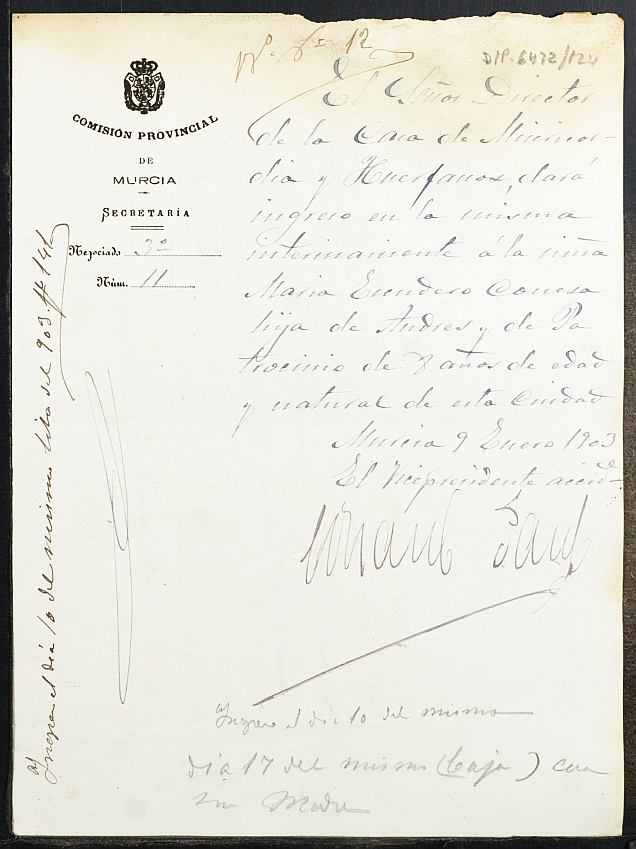 Nº 6º 12
DIP. 6472/124
COMISIÓN PROVINCIAL
DE
MURCIA
SECRETARÍA
Negociado 3º
Núm. 11
El Señor Director
de la Casa de Misericor-
dia y Huerfanos, dará
ingreso en la misma
interinamente á la niña
Maria Escudero Conesa
hija de Andres y de Pa
trocinio de 8 años de edad
y natural de esta Ciudad
Murcia 9 Enero 1903
El Vicepresidente accid-
Ingreso el dia 10 del mismo
dia 17 del mismo (baja) con
su Madre
Ingreso el dia 10 del mismo libro del 903. fº 141